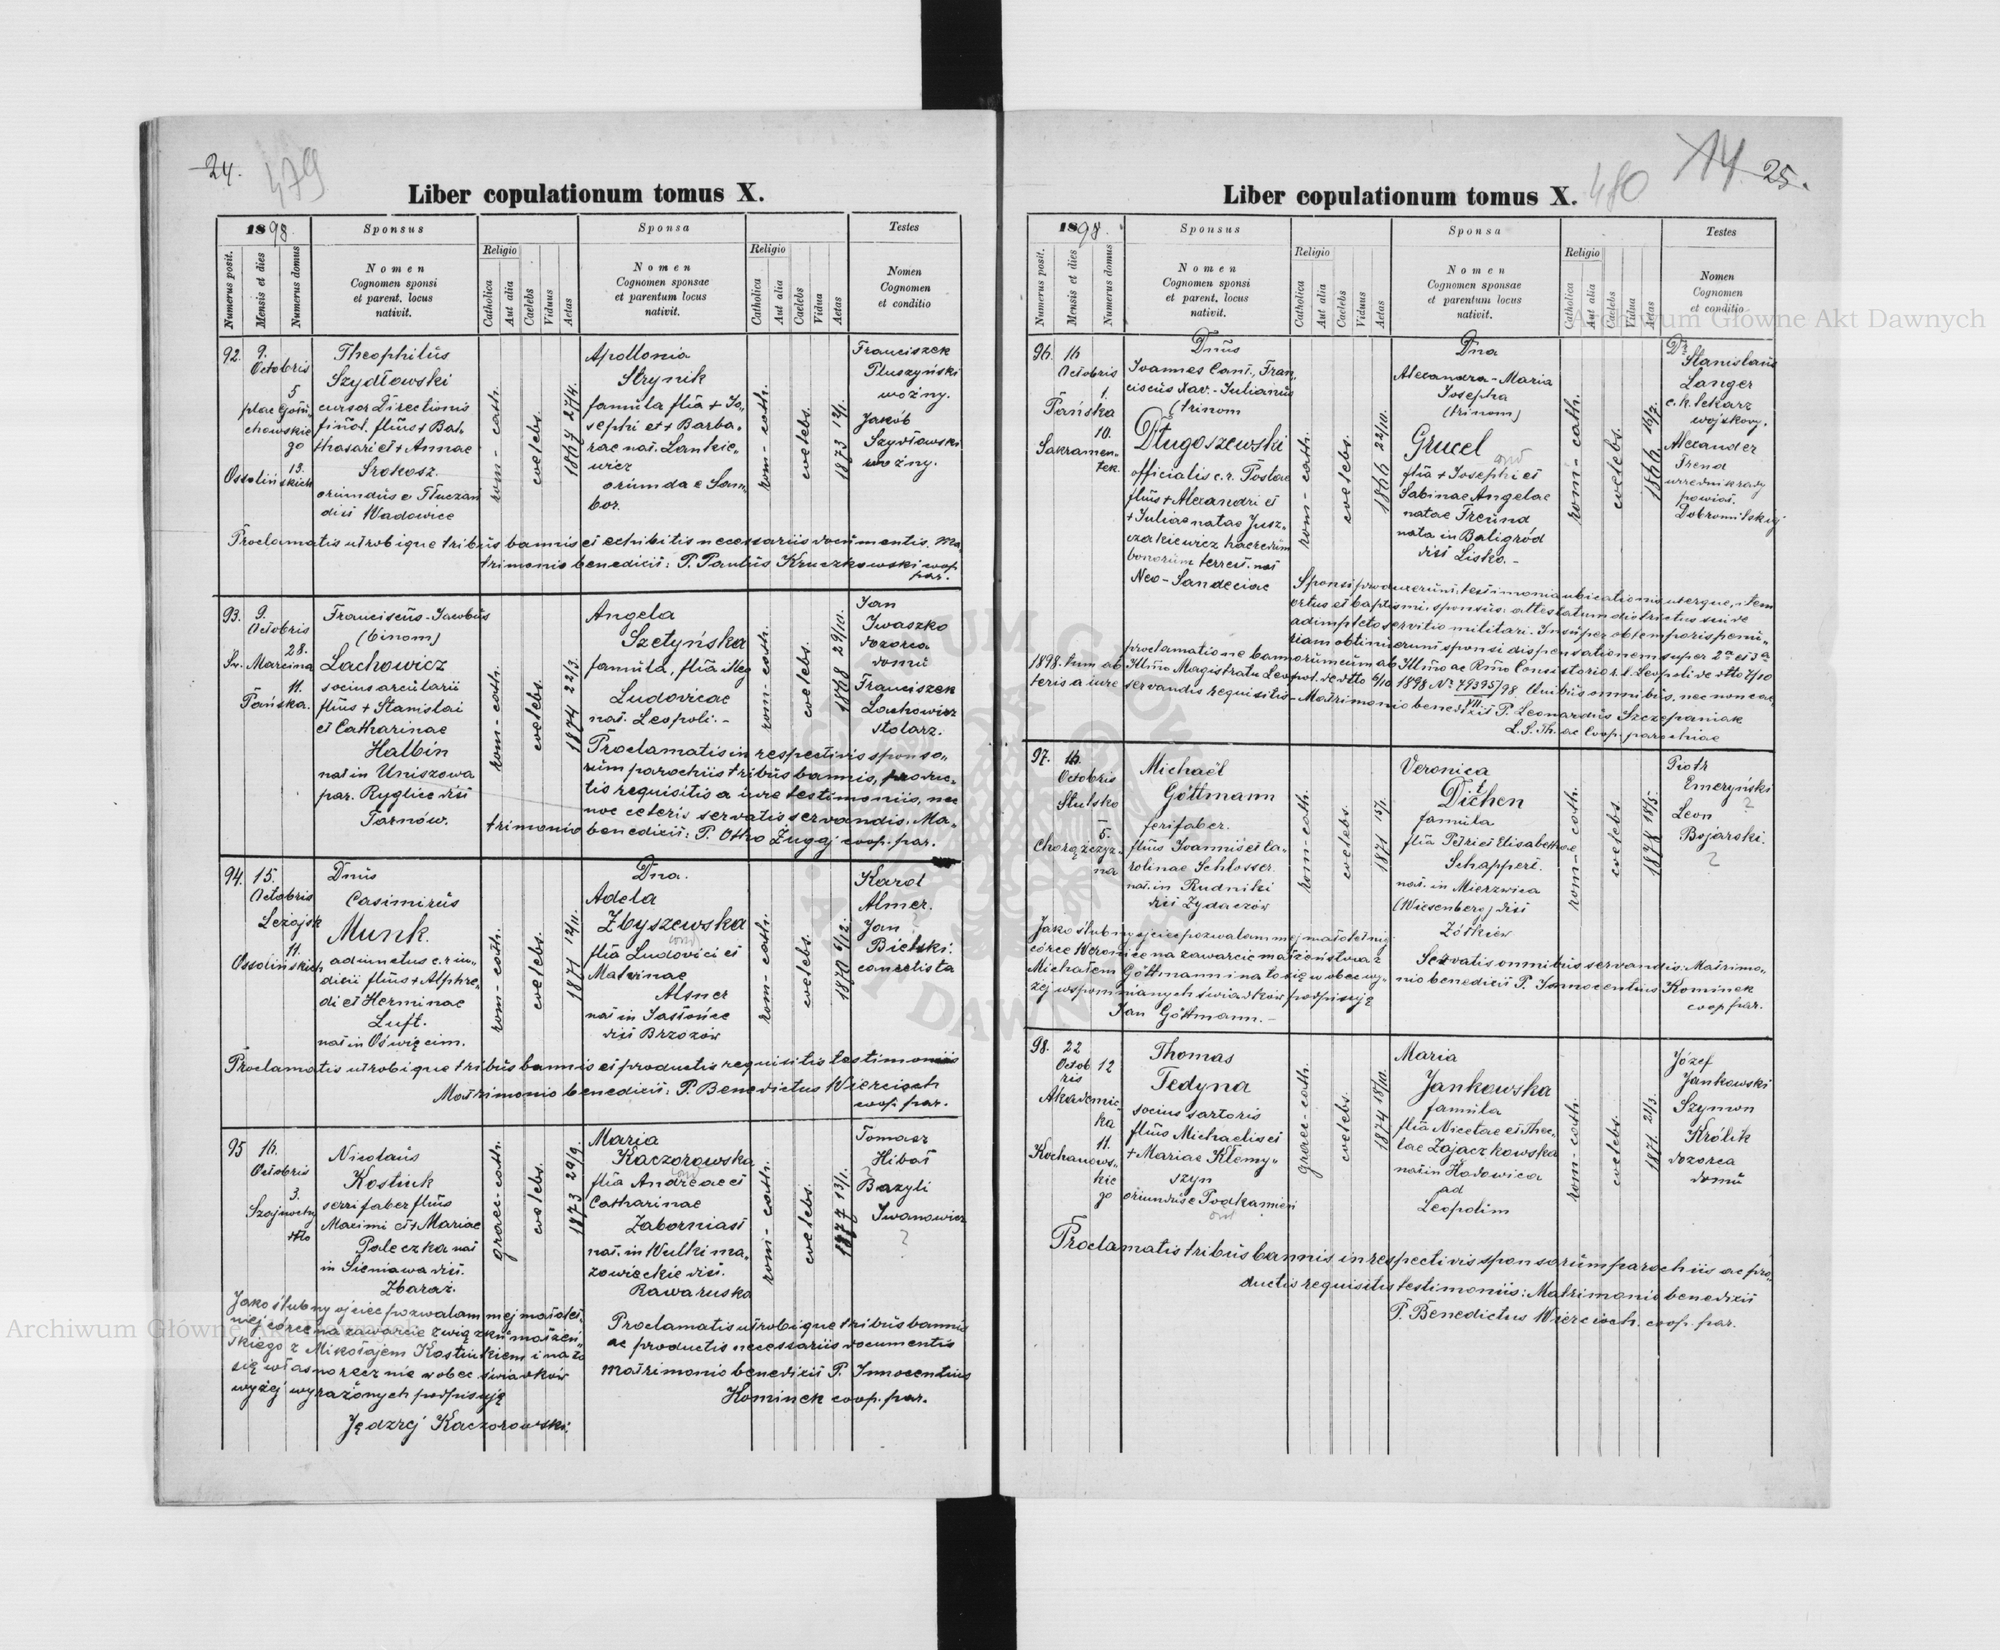 24.
479
Liber copulationum tomus X.
1898.
Sponsus
Sponsa
Testes
Numerus posit.
Mensis et dies
Numerus domus
Nomen
Cognomen sponsi
et parent. locus
nativit.
Religio
Catholica
Aut alia
Caelebs
Viduus
Aetas
Nomen
Cognomen sponsae
et parentum locus
nativit.
Religio
Catholica
Aut alia
Caelebs
Vidua
Aetas
Nomen
Cognomen
et conditio
92.
9.
Octobris
5
plac Gołu-
chowskie
go
13.
Ossolińskich
Theophilus
Szydłowski
cursor Directionis
finot. filius + Bal
thasari et + Annae
Srokosz.
oriundus e Tłuczań
dist Wadowice
rom-cath.
coelebs.
1867 27/4.
Apollonia
Strynik
famula filia + Jo„
sephi et + Barba„
rae nat. Lankie„
wicz
oriunda e Sam„
bor.
rom-cath.
coelebs.
1873 12/1.
Franciszek
Pluszyński
woźny.
Jakób
Szydłowski
woźny.
Proclamatis utrobique tribus bannis et exhibitis necessariis documentis. Ma„
trimonio benedixit: P. Paulus Kruczkowski coop.
par.
93.
9.
Octobris
28.
Sw. Marcina
11.
Pańska.
Franciscus-Jacobus
(binom)
Lachowicz
socius arcularii
filius + Stanislai
et Catharinae
Halbin
nat in Uniszowa
par. Ryglice dist
Tarnów.
rom-cath.
coelebs.
1874 22/3.
Angela
Szetyńska
famula, filia illeg
Ludovicae
nat. Leopoli.-
rom-cath.
coelebs.
1868 29/10.
Jan
Iwaszko
dozorca
domu
Franciszek
Lachowicz
stolarz.
Proclamatis in respectivis sponso„
rum parochiis tribus bannis, produc„
tis requisitis a iure testimoniis, nec
non ceteris servatis servandis. Ma„
trimonio benedixit: P. Otto Żugaj coop. par.
94.
15.
Octobris
Leżajsk
11.
Ossolińskich
Dnus
Casimirus
Munk.
adiunctus c. r iu„
dicii filius + Alphre„
di et Herminae
Luft.
nat in Oświęcim.
rom-cath.
coelebs.
1871 12/11.
Dna.
Adela
Zbyszewska
filia Ludovici et
Malvinae
Alsner
nat in Jasionce
dist Brzozów
rom-cath.
coelebs.
1870 6/12.
Karol
Almer.
Jan
Bielski.
cancelista
Proclamatis utrobique tribus bannis et productis requisitis testimoniis
Matrimonio benedixit: P. Benedictus Wiercioch
coop. par.
95
16.
Octobris
3.
Szajnochy
dtto
Nicolaus
Kostiuk
serrifaber filius
Maximi et + Mariae
Paleczka nat
in Sieniawa dist.
Zbaraż.
graec-cath.
coelebs.
1873 29/9.
Maria
Kaczorowska
filia Andreae et
Catharinae
Zaborniast
nat. in Wulki ma„
zowieckie dist.
Rawaruska
rom-cath.
coelebs.
1877 13/1.
Tomasz
Hibał
?
Bazyli
Iwanowicz
?
Jako ślubny ojciec pozwalam mej małolet„
niej córce na zawarcie związku małżeń„
skiego z Mikołajem Kostiukiem i na to
się własnoręcznie wobec świadków
wyżej wyrażonych podpisuję
Jędrzej Kaczorowski.
Proclamatis utrobique tribus bannis
ac productis necessariis documentis
matrimonio benedixit P. Innocentius
Kominek coop. par.
480
14
25.
Liber copulationum tomus X.
1898.
Sponsus
Sponsa
Testes
Numerus posit.
Mensis et dies
Numerus domus
Nomen
Cognomen sponsi
et parent. locus
nativit.
Religio
Catholica
Aut alia
Caelebs
Viduus
Aetas
Nomen
Cognomen sponsae
et parentum locus
nativit.
Religio
Catholica
Aut alia
Caelebs
Vidua
Aetas
Nomen
Cognomen
et conditio
96.
16
Octobris
1.
Pańska
10.
Sakramen„
tek.
Dnus
Joannes Cant., Fran„
ciscus Xav.-Julianus
(trinom
Długoszewski
officialis c. r. Postae
filius + Alexandri et
+ Juliae natae Jusz„
czakiewicz haeredum
bonorum terrest. nat
Neo-Sandeciae
rom-cath.
coelebs.
1866 22/10.
Dna
Alexandra-Maria
Josepha
(trinom)
Grucel
filia + Josephi et
Sabinae Angelae
natae Freund
nata in Baligród
dist Lisko.-
rom-cath.
coelebs.
1866 16/7.
Dr.
Stanislaus
Langer
c. k. lekarz
wojskowy.
Alexander
Frend
urzednik rady
powiat.
Dobromilskiej
Sponsi produxerunt testimonia ubicationis uterque, item
ortus et baptismi, sponsus attestatum districtus sui de
adimpleto servitio militari. Insuper ob temporis penu„
riam obtinuerunt sponsi dispensationem super 2a et 3a
proclamatione bannorum cum ab Illmo ac Rmo Consistorio r. l. Leopoli de dtto 7/10
1898. tum ab Illmo Magistratu Leopol. de dtto 6/10 1898 No 79395/98. Quibus omnibus, nec non cae„
VII.
teris a iure servandis requisitis - Matrimonio benedixit P. Leonardus Szczepaniak
L. S. Th. ac Coop. parochiae
97.
16.
Octobris
Stulsko
5.
Chorążczyz„
na
Michaël
Göttmann
ferifaber.
filius Joannis et Ca„
rolinae Schlosser
nat. in Rudniki
dist Żydaczów
rom-cath.
coelebs.
1871 15/1.
Veronica
Ditchen
famula
filia Petri et Elisabethae
Schappert.
nat. in Mierzwica
(Wiesenberg) dist
Żółkiew
rom-cath.
coelebs.
1878 15/5.
Piotr
Emeryński
?
Leon
Bojarski.
?
Jako ślubny ojciec pozwalam mej małoletniej
córce Weronice na zawarcie małżeństwa z
Michałem Göttmann i na to się w obec wy„
żej wspomnianych świadków podpisuję
Jan Göttmann.-
Servatis omnibus servandis: Matrimo„
nio benedixit P. Innocentius Kominek
coop par.
98.
22
Octob
ris
12
Akademic„
ka
11.
Kochanows„
kie
go
Thomas
Fedyna
socius sartoris
filius Michaelis et
+ Mariae Klemy„
szyn
oriundus e Podkamień
graec-cath.
coelebs.
1874 18/10.
Maria
Jankowska
famula
filia Nicetae et Thec„
lae Zajaczkowska
nat in Hodowica
ad
Leopolim
rom-cath.
coelebs.
1871. 21/3.
Józef
Jankowski
Szymon
Królik
dozorca
domu
Proclamatis tribus bannis in respectivis sponsorum parochiis ac pro„
ductis requisitis testimoniis: Matrimonio benedixit
P. Benedictus Wiercioch. coop. par.
Archiwum Główne Akt Dawnych
Archiwum Główne Akt Dawnych